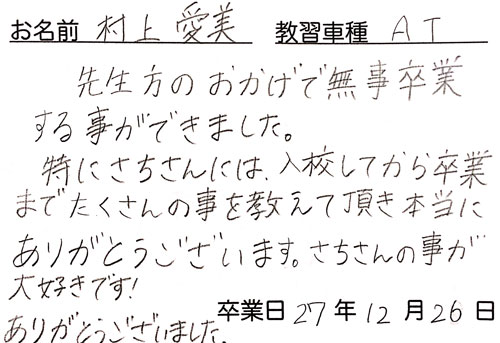 お名前 村上 愛美 教習車種 AT
先生方のおかげで無事卒業
する事ができました。
特にさちさんには、入校してから卒業
までたくさんの事を教えて頂き本当に
ありがとうございます。さちさんの事が
大好きです!
卒業日 27年12月26日
ありがとうございました。